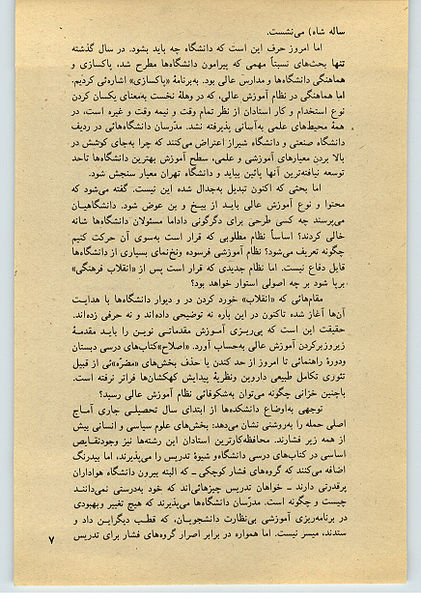 ساله شاه) می‌نشست.
اما امروز حرف این است که دانشگاه چه باید بشود. در سال گذشته
تنها بحث‌های نسبتاً مهمی که پیرامون دانشگاه‌ها مطرح شد، پاکسازی و
هماهنگی دانشگاه‌ها و مدارس عالی بود. به‌برنامهٔ «پاکسازی» اشاره‌ئی کردیم.
اما هماهنگی در نظام آموزش عالی، که در وهلهٔ نخست به‌معنای یکسان کردن
نوع استخدام و کار استادان از نظر تمام وقت و نیمه وقت و غیره است، در
همهٔ محیط‌های علمی به‌آسانی پذیرفته نشد. مدرّسان دانشگاه‌هائی در ردیف
دانشگاه صنعتی و دانشگاه شیراز اعتراض می‌کنند که چرا به‌جای کوشش در
بالا بردن معیارهای آموزشی و علمی، سطح آموزش بهترین دانشگاه‌ها تاحد
توسعه نیافته‌ترین آنها پائین بیاید و دانشگاه تهران معیار سنجش شود.
اما بحثی که اکنون تبدیل به‌جدال شده این نیست. گفته می‌شود که
محتوا و نوع آموزش عالی باید از بیخ و بن عوض شود. دانشگاهیان
می‌پرسند چه کسی طرحی برای دگرگونی داداما مسئولان دانشگاه‌ها شانه
خالی کردند؟ اساساً نظام مطلوبی که قرار است به‌سوی آن حرکت کنیم
چگونه تعریف می‌شود؟ نظام آموزشی فرسوده ونخ‌نمای بسیاری از دانشگاه‌ها
قابل دفاع نیست. اما نظام جدیدی که قرار است پس از «انقلاب فرهنگی»
برپا شود بر چه اصولی استوار خواهد بود؟
مقام‌هائی که «انقلاب» خورد کردن در و دیوار دانشگاه‌ها با هدایت
آن‌ها آغاز شده تاکنون در این باره نه توضیحی داده‌اند و نه حرفی زده‌اند.
حقیقت این است که پی‌ریزی آموزش مقدماتی نوین را باید مقدمهٔ
زیروزبرکردن آموزش عالی به‌حساب آورد. «اصلاح»کتاب‌های درسی دبستان
ودورهٔ راهنمائی تا امروز از حد کندن یا حذف بخش‌های «مضرّه»ئی از قبیل
تئوری تکامل طبیعی داروین ونظریهٔ پیدایش کهکشان‌ها فراتر نرفته است.
باچنین خزانی چگونه می‌توان به‌شکوفائی نظام آموزش عالی رسید؟
توجهی به‌اوضاع دانشکده‌ها از ابتدای سال تحصیلی جاری آماج
اصلی حمله را به‌روشنی نشان می‌دهد: بخش‌های علوم سیاسی و انسانی بیش
از همه زیر فشارند. محافظه‌کارترین استادان این رشته‌ها نیز وجودنقایص
اساسی در کتاب‌های درسی دانشگاه‌و شیوهٔ تدریس را می‌پذیرند، اما بیدرنگ
اضافه می‌کنند که گروه‌های فشار کوچکی ــ که البته بیرون دانشگاه هواداران
پرقدرتی دارند ــ خواهان تدریس چیزهائی‌اند که خود به‌درستی نمی‌داننـد
چیست و چگونه است. مدرّسان دانشگاه‌ها می‌پذیرند که هیچ تغییر وبهبودی
در برنامه‌ریزی آموزشی بی‌نظارت دانشجویـان، که قطـب دیگراین داد و
ستدند، میسر نیست. اما همواره در برابر اصرار گروه‌های فشار برای تدریس
۷